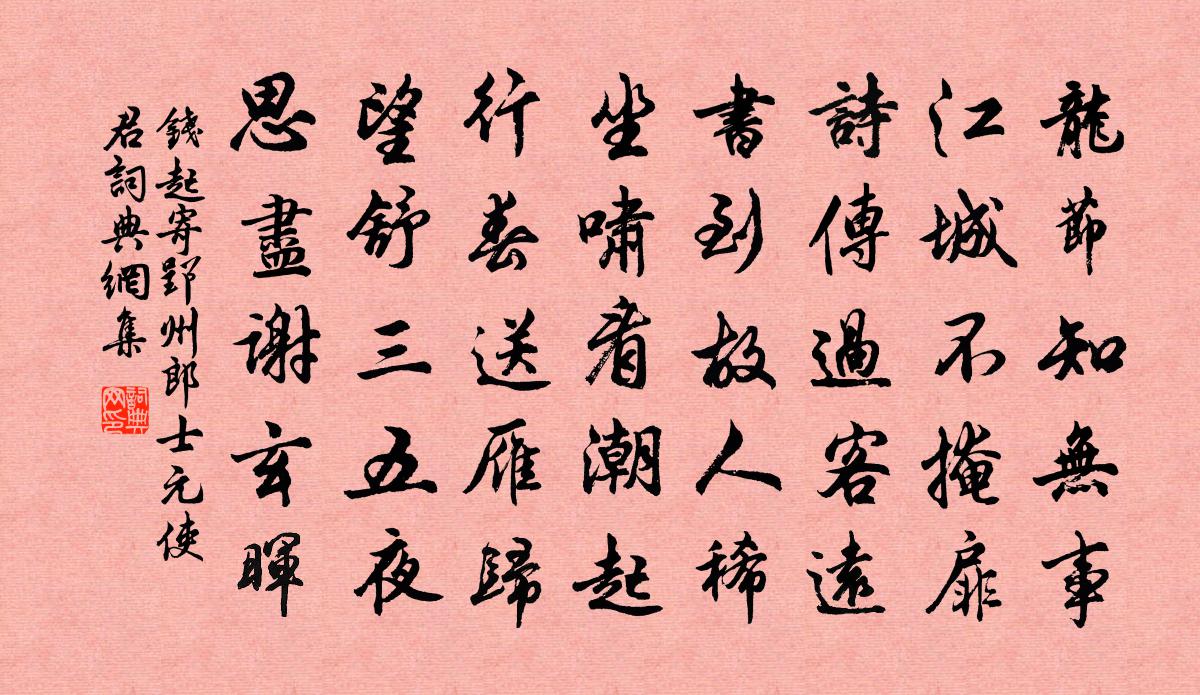 龍節知無事
江城不掩扉
詩傳過客遠
書到故人稀
坐嘯看潮起
行春送雁歸
望舒三五夜
思盡謝玄暉
錢起寄郢州郎士元使
君詞典網集
詞典
网印